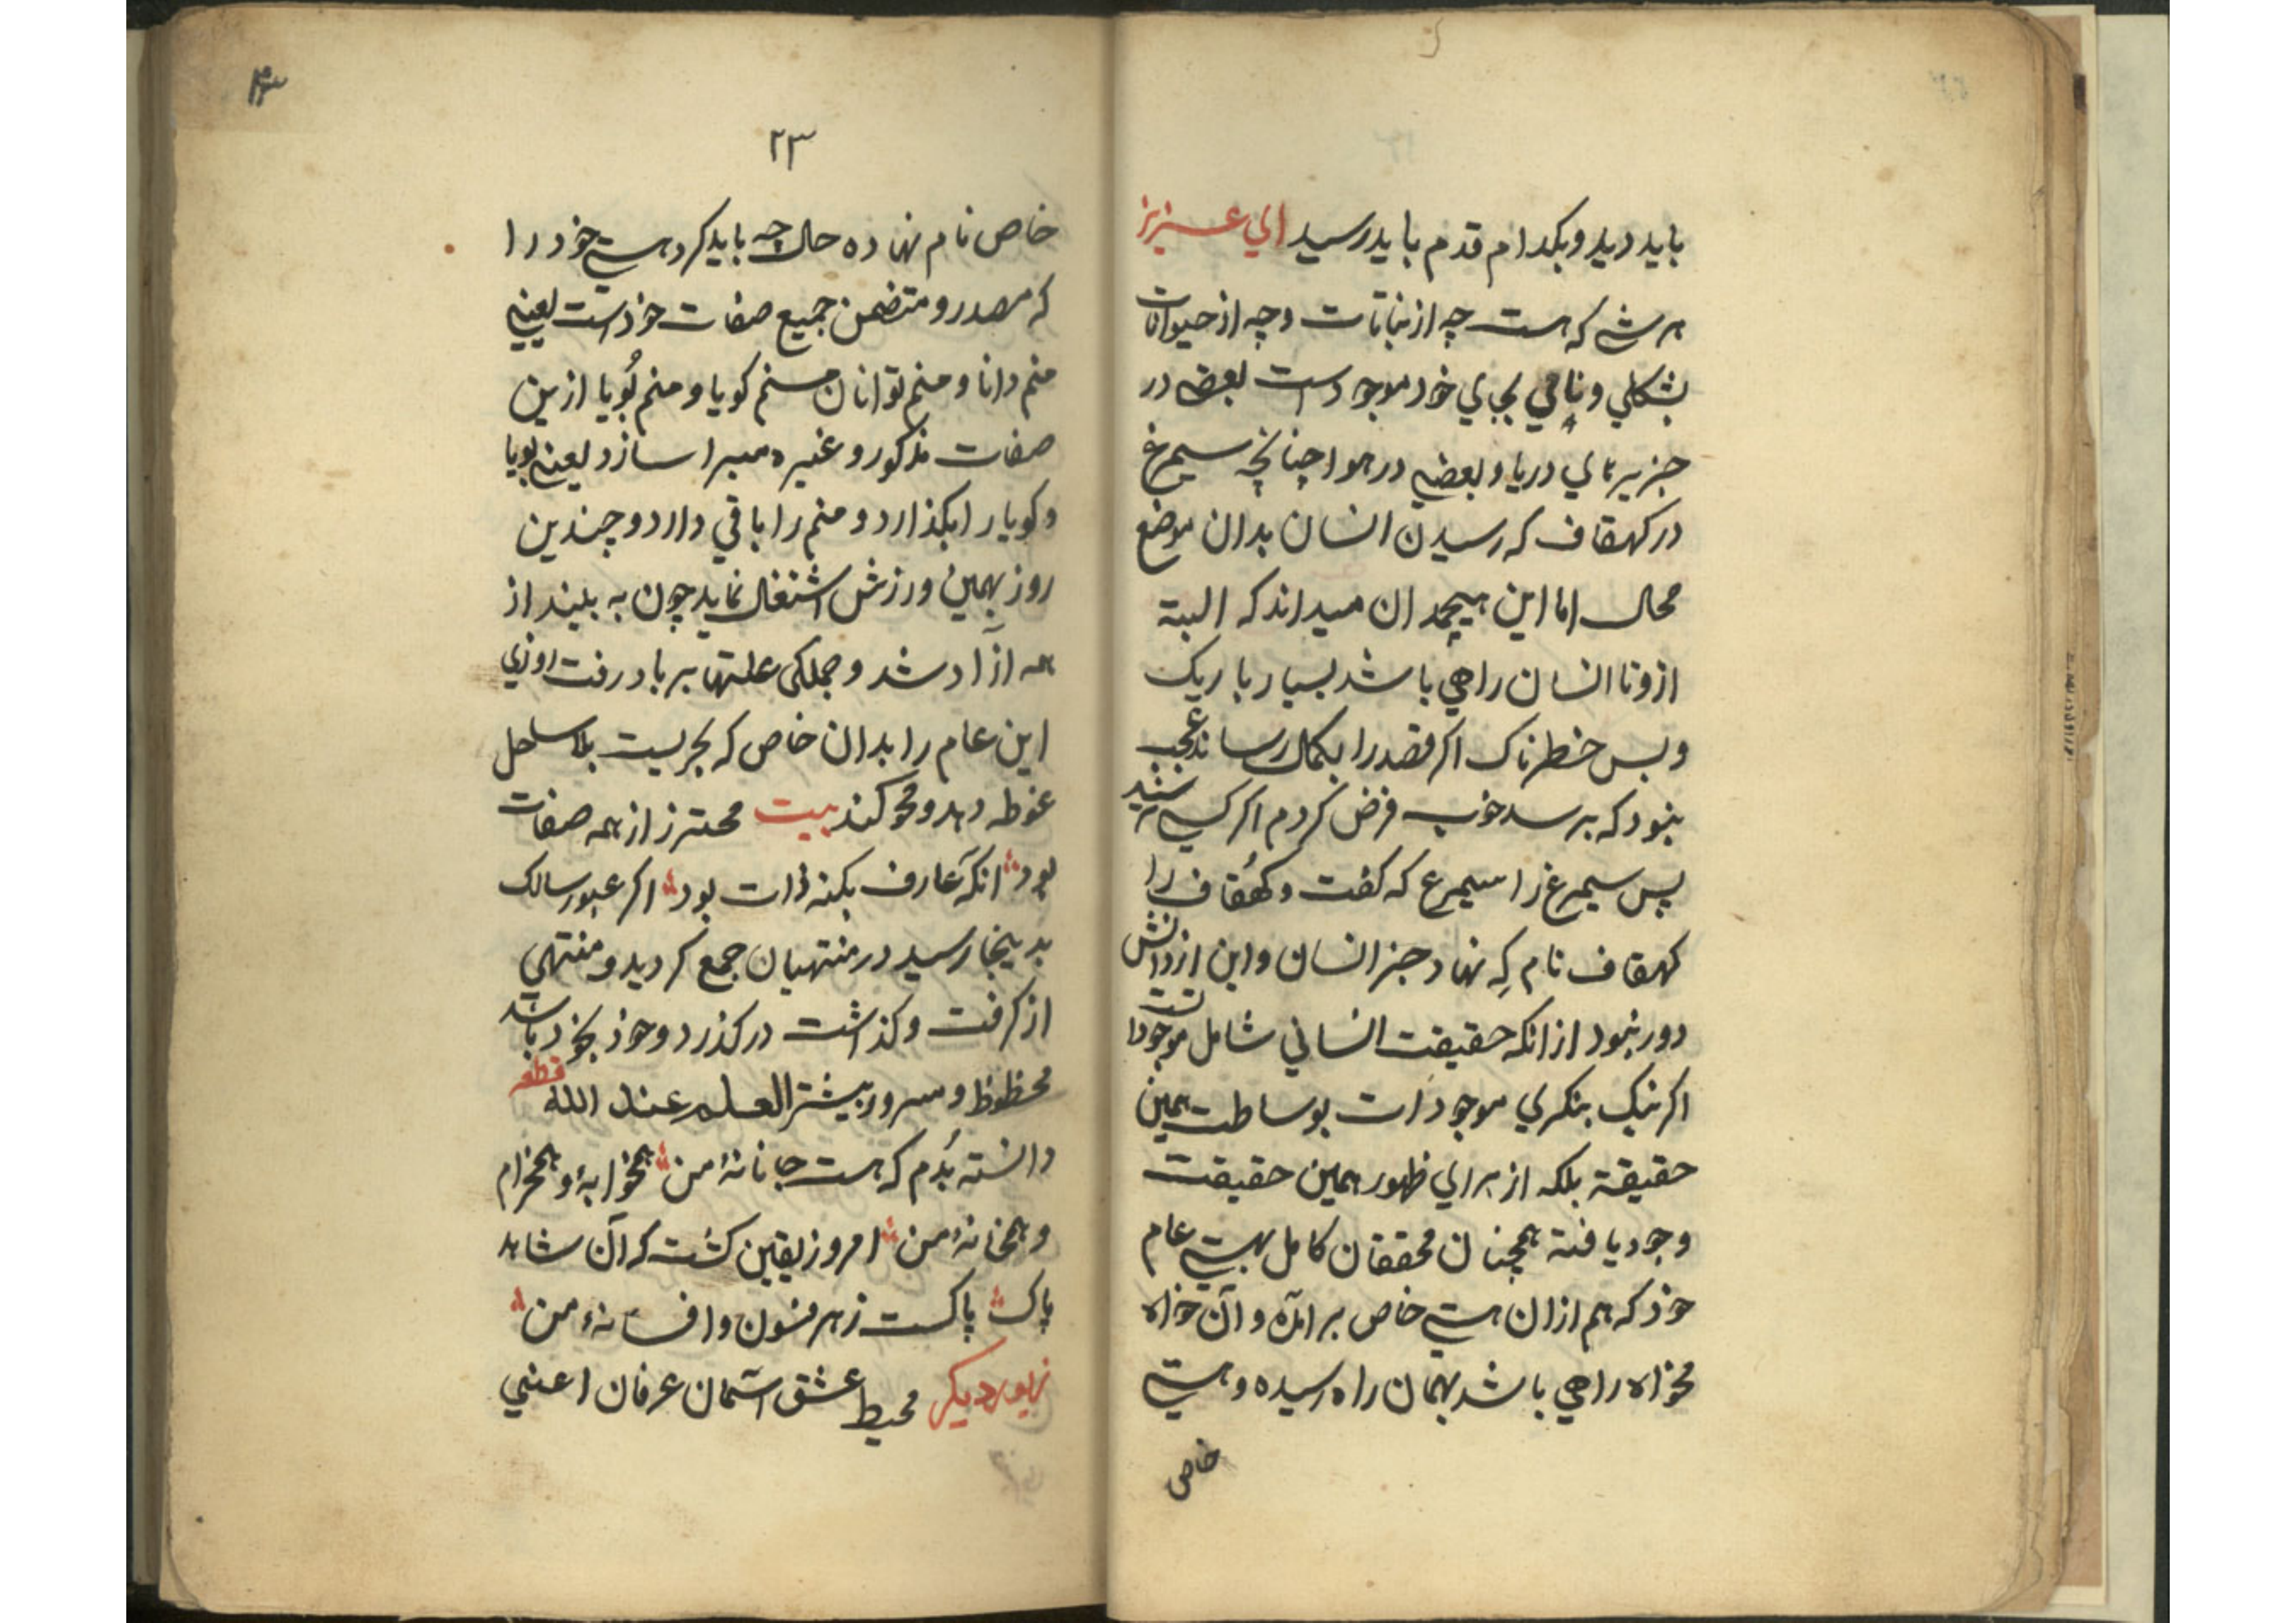 باید دید و بکدام قدم باید رسید ای عزیز
هر شی که هست چه از نباتات و چه از حیوانات
بشکلی و نامی بجای خود موجود است بعضی در
جزیرهای دریا و بعضی در هوا چنانچه سیمرغ
در کهقاف که رسیدن انسان بدان موضع
محال اما این هیچمدان میداند که البتة
ازو تا انسان راهی باشد بسیار باریک
و بس خطرناک اکر قصد را بکمال رساند عجب
نبود که برسد خوب فرض کردم اکر کسی نرسید
پس سیمرغ را سیمرغ که کفت و کهقاف را
کهقاف نام که نهاد جز انسان و این از دانش
دور نبود از انکه حقیقت انسانی شامل موجودا تست
اکر نیک بنکری موجودات بوساطت همین
حقیقة بلکه از برای ظهور همین حقیقت
وجود یافته همچنان محققان کامل بهستی عام
خود که هم ازان هستی خاص برامده و آن خواه
مخواه راهی باشد بهمان راه رسیده و هستی
خاص
۲۳
خاص نام نهاده حالا چه باید کرد هستی خود را
که مصدر و متضمن جمیع صفات خود است یعنی
منم دانا و منم توانا منم کویا و منم بویا ازین
صفات مذکور و غیره مبرا سازد یعنی بویا
و کویا را بکذارد و منم را باقی دارد و چندین
روز بهمین ورزش اشتغال نماید چون به بیند از
همه آزاد شد و جملکی علتها بر باد رفت
این عام را بدان خاص که بحریست بلا ساحل
غوطه دهد و محو کند بیت محترز از همه صفات
بود انکه عارف بکنه ذات بود اکر عبور سالک
بدینجا رسید در منتهیان جمع کردید و منتهی
از کرفت و کذاشت در کذرد و خود بخود باشد
محظوظ و مسرور بیشتر العلم عند الله قطعه
دانسته بدم که هست جانانهٔ من همخوابهٔ و همخرام
و همخانهٔ من امروز یقین کشت که آن شاهد
پاک پاکست ز هر فسون و افسانهٔ من
زیور دیکر محیط عشق آسمان عرفان اعنی